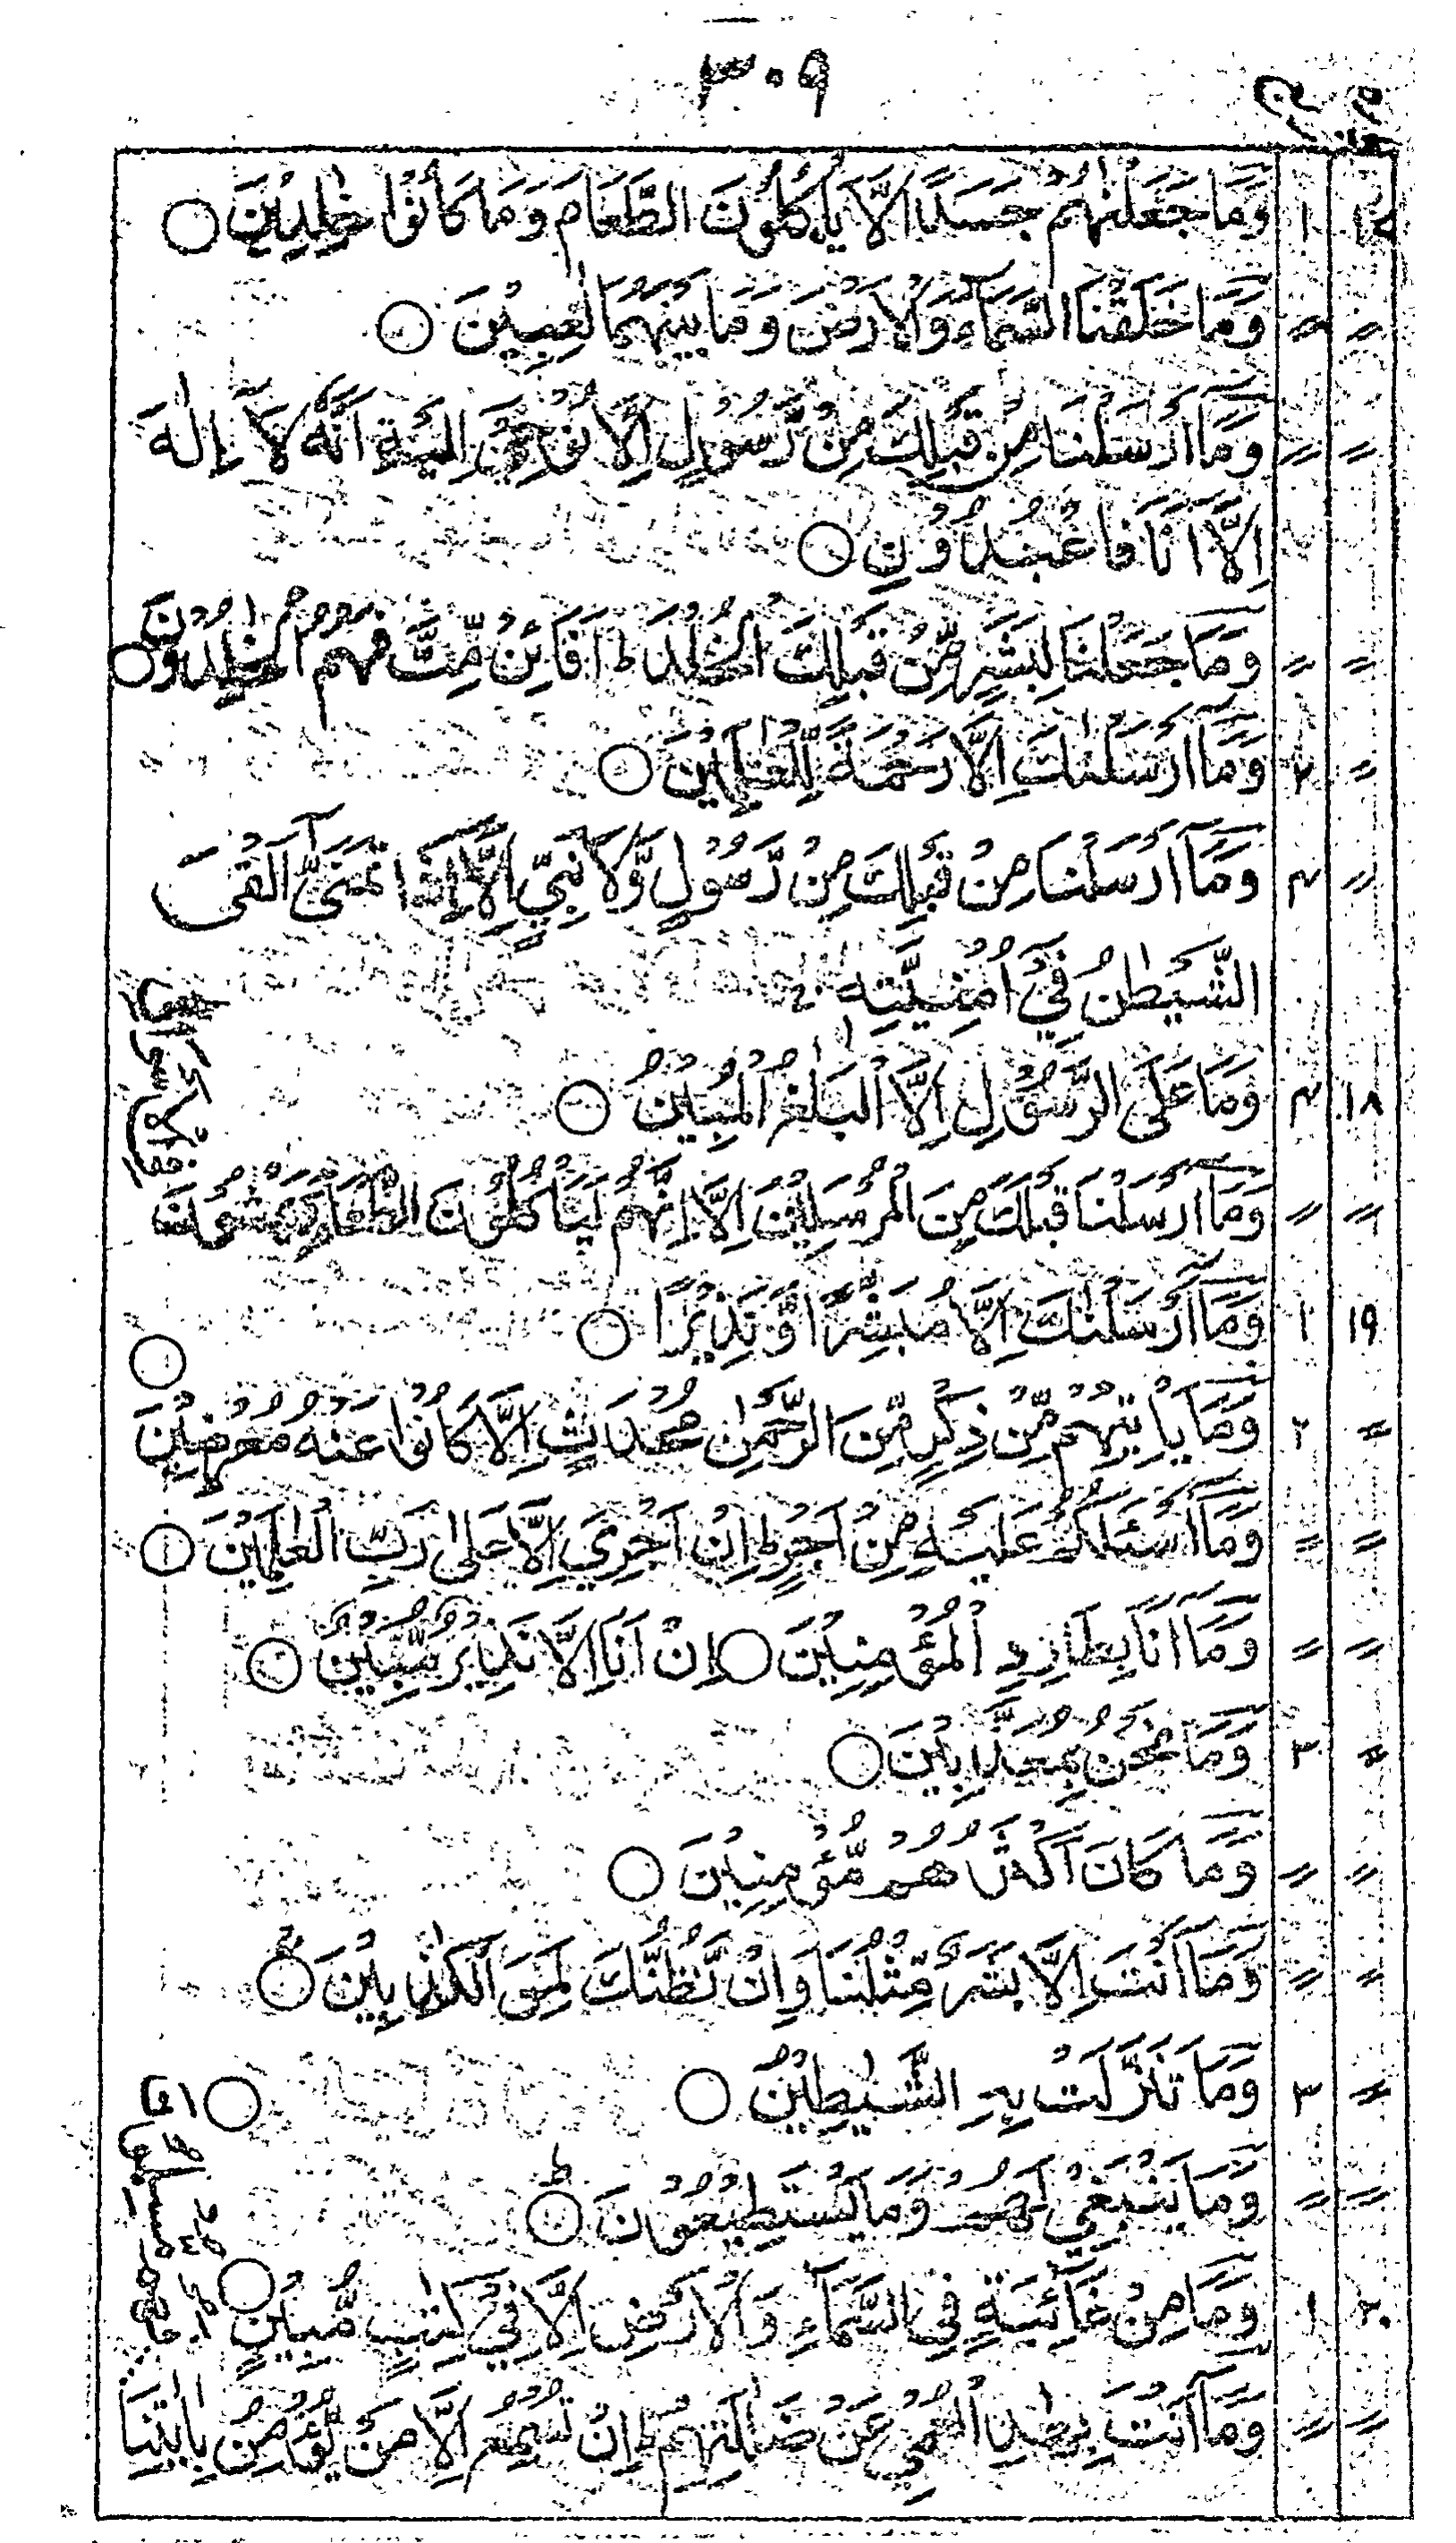 ٣٠٩
١٧ ١ وَمَا جَعَلْنٰهُمْ جَسَدًا لَّا يَأْكُلُوْنَ الطَّعَامَ وَمَا كَانُوْا خٰلِدِيْنَ ○
〃 〃 وَمَا خَلَقْنَا السَّمَآءَ وَالْاَرْضَ وَمَا بَيْنَهُمَا لٰعِبِيْنَ ○
〃 〃 وَمَآ اَرْسَلْنَا مِنْ قَبْلِكَ مِنْ رَّسُوْلٍ اِلَّا نُوْحِيْٓ اِلَيْهِ اَنَّهٗ لَآ اِلٰهَ
اِلَّآ اَنَا فَاعْبُدُوْنِ ○
〃 〃 وَمَا جَعَلْنَا لِبَشَرٍ مِّنْ قَبْلِكَ الْخُلْدَ ط اَفَا۟ئِنْ مِّتَّ فَهُمُ الْخٰلِدُوْنَ ○
〃 ٧ وَمَآ اَرْسَلْنٰكَ اِلَّا رَحْمَةً لِّلْعٰلَمِيْنَ ○
〃 ١٤ وَمَآ اَرْسَلْنَا مِنْ قَبْلِكَ مِنْ رَّسُوْلٍ وَّلَا نَبِيٍّ اِلَّآ اِذَا تَمَنّٰىٓ اَلْقَى
الشَّيْطٰنُ فِيْٓ اُمْنِيَّتِهٖ
١٨ ١٤ وَمَا عَلَى الرَّسُوْلِ اِلَّا الْبَلٰغُ الْمُبِيْنُ ○
〃 〃 وَمَآ اَرْسَلْنَا قَبْلَكَ مِنَ الْمُرْسَلِيْنَ اِلَّآ اِنَّهُمْ لَيَاْكُلُوْنَ الطَّعَامَ وَيَمْشُوْنَ
فِي الْاَسْوَاقِ
١٩ ١ وَمَآ اَرْسَلْنٰكَ اِلَّا مُبَشِّرًا وَّنَذِيْرًا ○
〃 ٢ وَمَا يَاْتِيْهِمْ مِّنْ ذِكْرٍ مِّنَ الرَّحْمٰنِ مُحْدَثٍ اِلَّا كَانُوْا عَنْهُ مُعْرِضِيْنَ ○
〃 〃 وَمَآ اَسْئَلُكُمْ عَلَيْهِ مِنْ اَجْرٍ ط اِنْ اَجْرِيَ اِلَّا عَلٰى رَبِّ الْعٰلَمِيْنَ ○
〃 〃 وَمَآ اَنَا بِطَارِدِ الْمُؤْمِنِيْنَ ○ اِنْ اَنَا اِلَّا نَذِيْرٌ مُّبِيْنٌ ○
〃 ٣ وَمَا نَحْنُ بِمُعَذَّبِيْنَ ○
〃 〃 وَمَا كَانَ اَكْثَرُهُمْ مُّؤْمِنِيْنَ ○
〃 〃 وَمَآ اَنْتَ اِلَّا بَشَرٌ مِّثْلُنَا وَاِنْ نَّظُنُّكَ لَمِنَ الْكٰذِبِيْنَ ○
〃 ٣ وَمَا تَنَزَّلَتْ بِهِ الشَّيٰطِيْنُ ○
〃 〃 وَمَا يَنْبَغِيْ لَهُمْ وَمَا يَسْتَطِيْعُوْنَ ○ ط
٢٠ ١ وَمَا مِنْ غَآئِبَةٍ فِي السَّمَآءِ وَالْاَرْضِ اِلَّا فِيْ كِتٰبٍ مُّبِيْنٍ ○
〃 〃 وَمَآ اَنْتَ بِهٰدِي الْعُمْيِ عَنْ ضَلٰلَتِهِمْ ط اِنْ تُسْمِعُ اِلَّا مَنْ يُّؤْمِنُ بِاٰيٰتِنَا
فَهُمْ مُّسْلِمُوْنَ ○